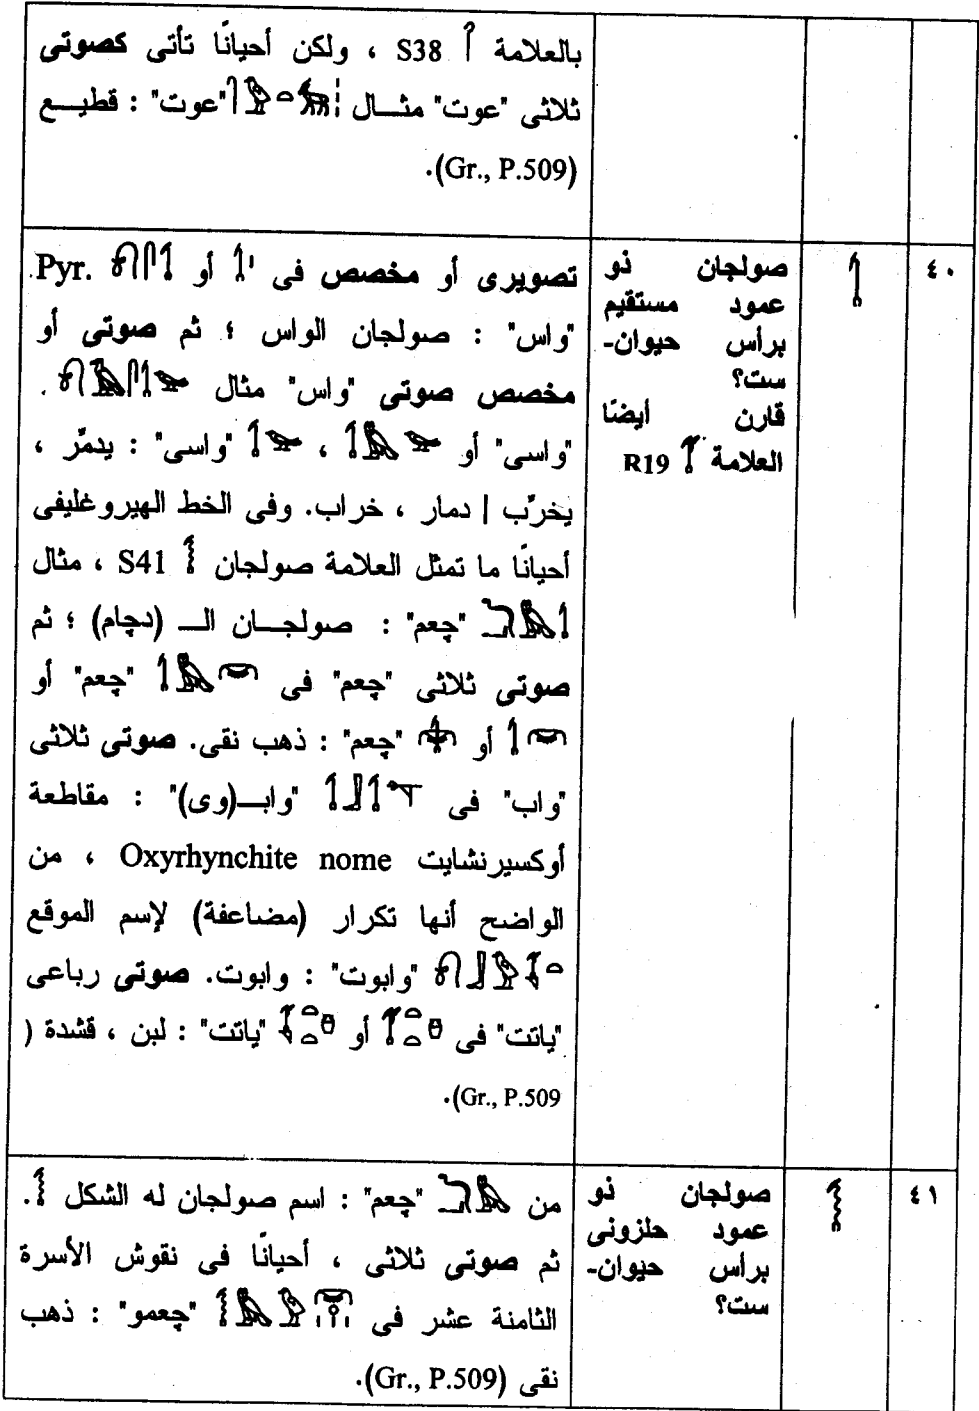 بالعلامة 𓋾 S38 ، ولكن أحيانًا تأتى كصوتى
ثلاثى "عوت" مثــال "عوت" : قطيــع
(Gr., P.509).
٤٠
𓌀
صولجان ذو
عمود مستقيم
برأس حيوان-
ست؟
قارن أيضًا
العلامة R19
تصويرى أو مخصص فى أو Pyr.
"واس" : صولجان الواس ؛ ثم صوتى أو
مخصص صوتى "واس" مثال .
"واسى" أو ، "واسى" : يدمّر ،
يخرّب | دمار ، خراب. وفى الخط الهيروغليفى
أحيانًا ما تمثل العلامة صولجان 𓌁 S41 ، مثال
"چعم" : صولجــان الــ (دچام) ؛ ثم
صوتى ثلاثى "چعم" فى "چعم" أو
أو "چعم" : ذهب نقى. صوتى ثلاثى
"واب" فى "وابــ(وى)" : مقاطعة
أوكسيرنشايت Oxyrhynchite nome ، من
الواضح أنها تكرار (مضاعفة) لإسم الموقع
"وابوت" : وابوت. صوتى رباعى
"ياتت" فى أو "ياتت" : لبن ، قشدة (
Gr., P.509).
٤١
𓌁
صولجان ذو
عمود حلزونى
برأس حيوان-
ست؟
من "چعم" : اسم صولجان له الشكل 𓌁.
ثم صوتى ثلاثى ، أحيانًا فى نقوش الأسرة
الثامنة عشر فى "چعمو" : ذهب
نقى (Gr., P.509).